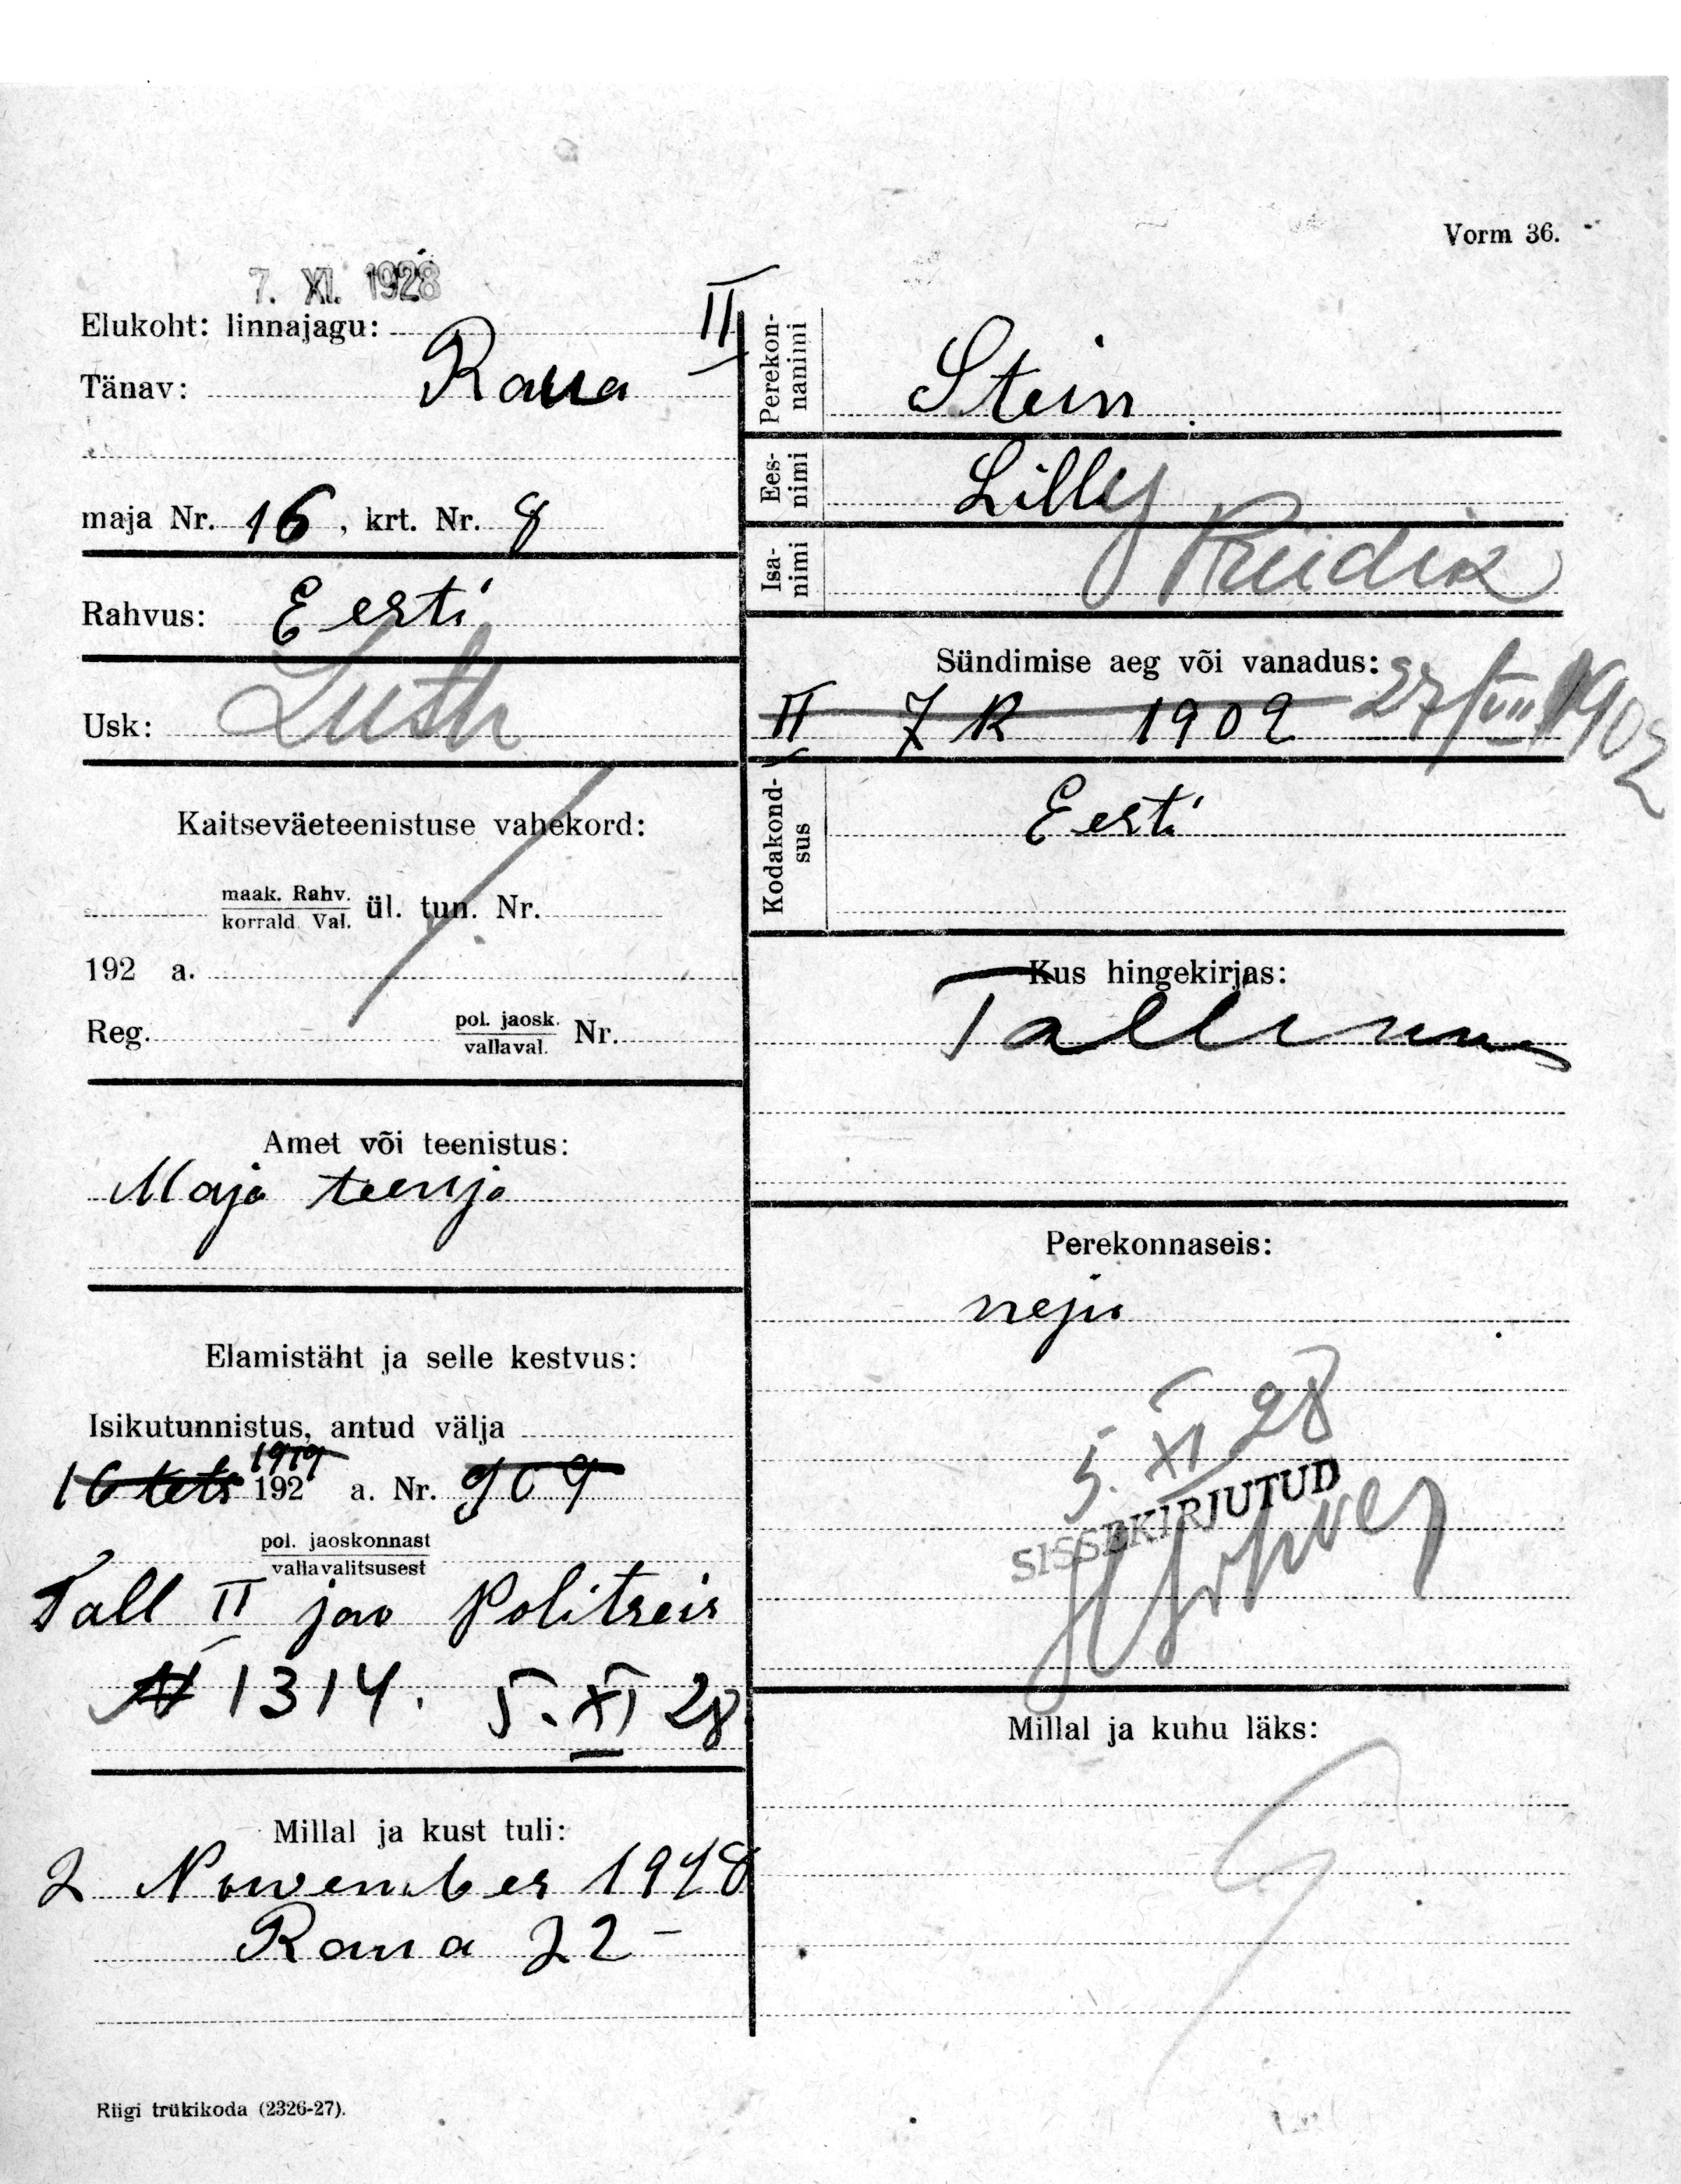 Vorm 36.
7. XI. 1928
Elukoht: linnajagu: II
Tänav: Raua
maja Nr. 16, krt. Nr. 8
Rahvus: Eesti
Usk: Luth
Kaitseväeteenistuse vahekord:
maak. Rahv.
korrald. Val. ül. tun. Nr.
192 a.
Reg. pol. jaosk. Nr.
vallaval.
Amet või teenistus:
Maja teenja
Elamistäht ja selle kestvus:
Isikutunnistus, antud välja
1919
16 192 a. Nr. 909
pol. jaoskonnast
vallavalitsusest
Tall II jao Politseis
N 1314. 5. XI 28
Millal ja kust tuli:
2 November 1928
Raua 22 –
Riigi trükikoda (2326-27).
Perekon-
nanimi Stein
Ees-
nimi Lilly
Isa-
nimi Priidik
Sündimise aeg või vanadus: 27/VII 1902
II 7 1902
Kodakond-
sus Eesti
Kus hingekirjas:
Tallinnas
Perekonnaseis:
neiu
5. XI 28
SISSEKIRJUTUD
Millal ja kuhu läks: